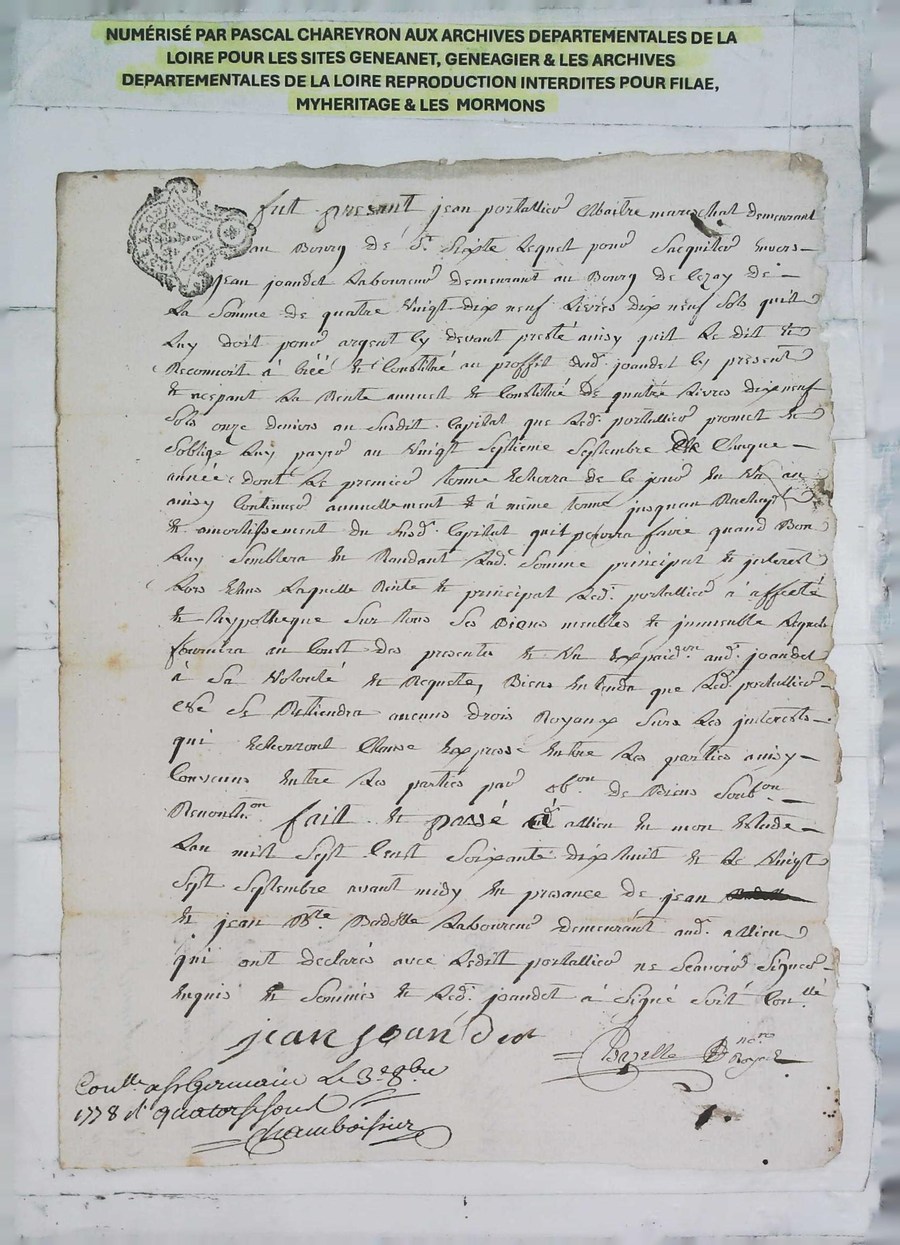 NUMÉRISÉ PAR PASCAL CHAREYRON AUX ARCHIVES DEPARTEMENTALES DE LA
LOIRE POUR LES SITES GENEANET, GENEAGIER & LES ARCHIVES
DEPARTEMENTALES DE LA LOIRE REPRODUCTION INTERDITES POUR FILAE,
MYHERITAGE & LES MORMONS
fut presant jean portallier Maitre marechal demeurant
au Bourg de St. Sixte Lequel pour Sacquiter Envers
jean joandet Laboureur demeurant au Bourg de Cezay de
La Somme de quatre Vingt dix neuf Livres dix neuf Sols quil
Luy doit pour argent Cy devant presté ainsy quil Le dit Et
Reconnoit à Créé Et Constitué au proffit dud. joandet Cy present
Et acceptant La Rente annuel Et Constitué de quatre Livres dix neuf
Sols onze deniers au Susdit Capital que Led. portallier promet Et
Soblige Luy payer au Vingt Septieme Septembre Chaque
année dont Le premier terme Echerra de Ce jour En Un an
ainsy Continuer annuellement Et à même terme jusquau Rachapt
Et amortissement du Susd. Capital quil pourra faire quand Bon
Luy Semblera En Randant Lad. Somme principal Et interest
Lors Echus Laquelle Rente Et principal Led. portallier à affecté
Et hypotheque Sur tous Ses Biens meubles Et immeuble Lequel
fournira au Cout des presente Et Un Expaidon. aud. joandet
à Sa Volonté Et Requete, Bien Entendu que Led. portallier
Ne Se Retiendra aucuns drois Royaux Surs Les interests
qui Echerront Clause Expresse Entre Les parties ainsy
Convenus Entre Les parties par obon. de Biens Soubon.
Renonchon. fait Et passé à allieu En mon Etude
Lan mil Sept Cent Soixante dix huit Et Le Vingt
Sept Septembre avant midy En presance de jean
Et jean Bte. Badolle Laboureur demeurant aud. allieu
qui ont declarés avec Ledit portallier ne Scavoir Signer
Enquis Et Sommés Et Led. joandet à Signé Soit Conllé
jean joandet
Bazelle nore Royal
Conllé a St Germain Le 3e 8bre
1778 Rt quatorse sous
Chamboissier